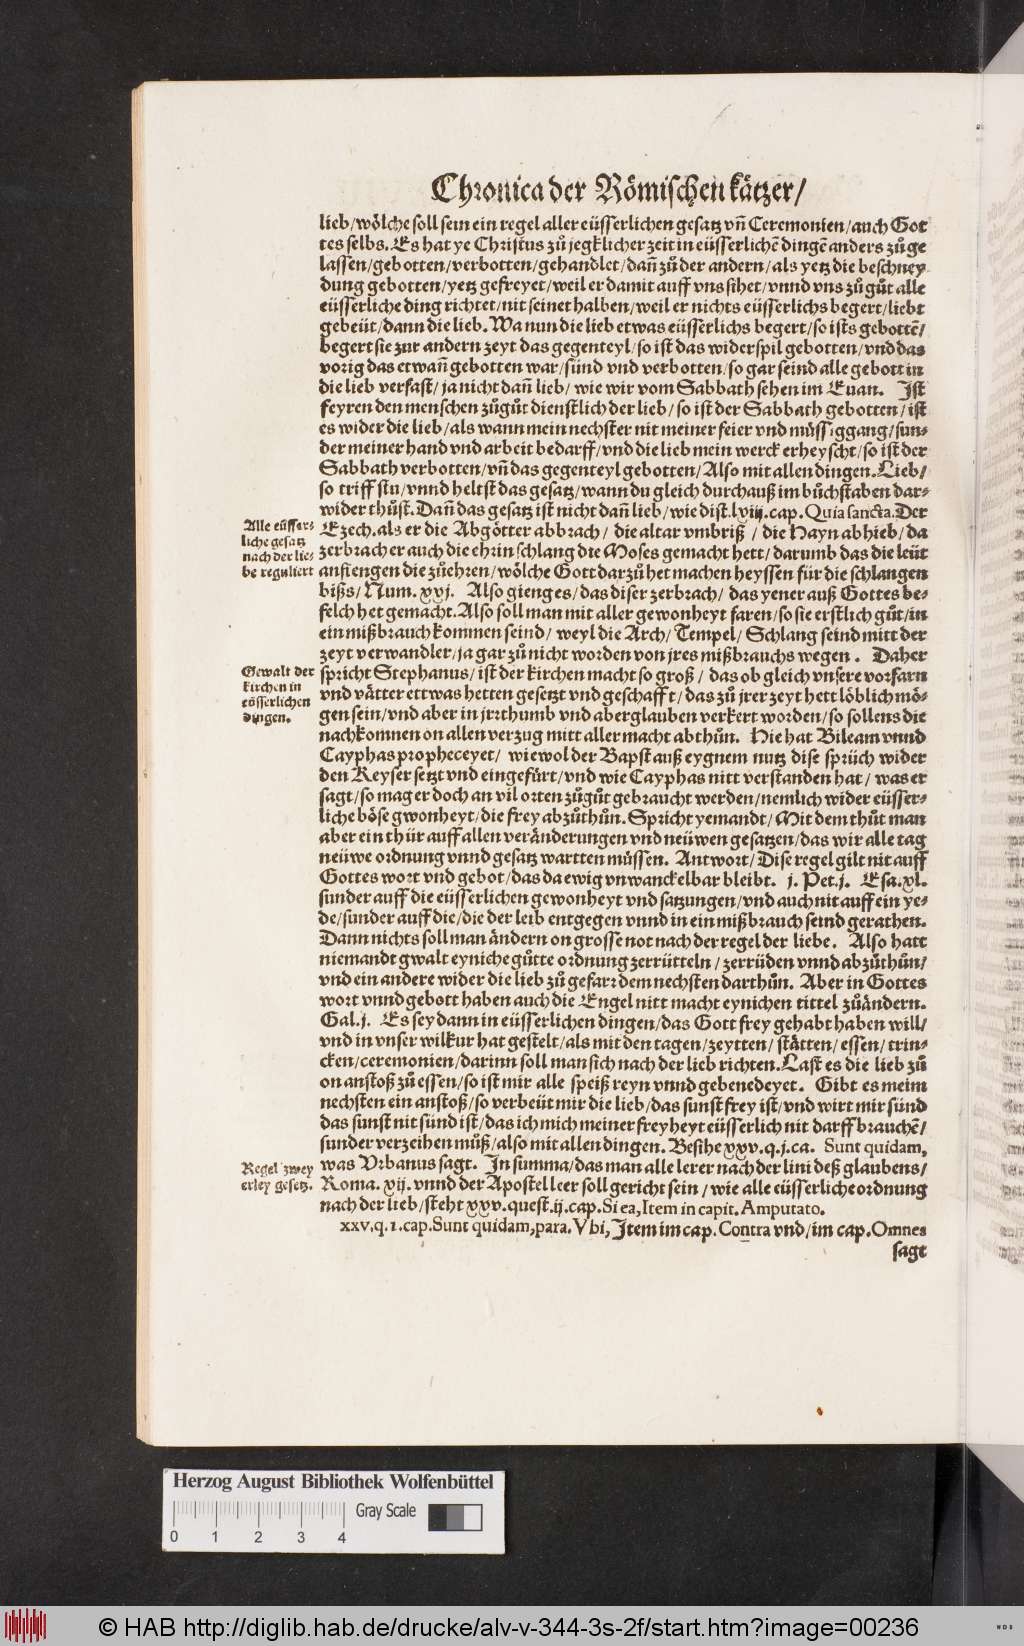 Chronica der Römischen kätzer/
lieb/wölche soll sein ein regel aller eüsserlichen gesatz vn̄ Ceremonien/auch Got
tes selbs. Es hat ye Christus zů jegklicher zeit in eüsserlichē dingē anders zů ge
lassen/gebotten/verbotten/gehandlet/dañ zů der andern/als yetz die beschney
dung gebotten/yetz gefreyet/weil er damit auff vns sihet/vnnd vns zů gůt alle
eüsserliche ding richtet/nit seinet halben/weil er nichts eüsserlichs begert/liebt
gebeüt/dann die lieb. Wa nun die lieb etwas eüsserlichs begert/so ists gebottē/
begert sie zur andern zeyt das gegenteyl/so ist das widerspil gebotten/vnd das
vorig das etwañ gebotten war/sünd vnd verbotten/so gar seind alle gebott in
die lieb verfast/ja nicht dañ lieb/wie wir vom Sabbath sehen im Euan. Ist
feyren den menschen zůgůt dienstlich der lieb/so ist der Sabbath gebotten/ist
es wider die lieb/als wann mein nechster nit meiner feier vnd müssiggang/sun-
der meiner hand vnd arbeit bedarff/vnd die lieb mein werck erheyscht/so ist der
Sabbath verbotten/vn̄ das gegenteyl gebotten/Also mit allen dingen. Lieb/
so triffstu/vnnd heltst das gesatz/wann du gleich durchauß im bůchstaben dar-
wider thůst. Dañ das gesatz ist nicht dañ lieb/wie dist. lviij. cap. Quia sancta. Der
Alle eüsser-
liche gesatz
nach der lie-
be reguliert
Ezech. als er die Abgötter abbrach/ die altar vmbriß / die Hayn abhieb/da
zerbrach er auch die ehrin schlang die Moses gemacht hett/darumb das die leüt
anfiengen die zůehren/wölche Gott darzů het machen heyssen für die schlangen
bißs/Num. xxj. Also gieng es/das diser zerbrach/ das yener auß Gottes be-
felch het gemacht. Also soll man mit aller gewonheyt faren/so sie erstlich gůt/in
ein mißbrauch kommen seind/ weyl die Arch/ Tempel/ Schlang seind mitt der
zeyt verwandler/ja gar zů nicht worden von jres mißbrauchs wegen. Daher
Gewalt der
kirchen in
eösserlichen
dingen.
spricht Stephanus/ist der kirchen macht so groß/ das ob gleich vnsere vorfarn
vnd vätter ettwas hetten gesetzt vnd geschafft/das zů jrer zeyt hett löblich mö-
gen sein/vnd aber in jrrthumb vnd aberglauben verkert worden/so sollens die
nachkomnen on allen verzug mitt aller macht abthůn. Hie hat Bileam vnnd
Cayphas propheceyet/ wiewol der Bapst auß eygnem nutz dise sprüch wider
den Keyser setzt vnd eingefürt/vnd wie Cayphas nitt verstanden hat/ was er
sagt/so mag er doch an vil orten zůgůt gebraucht werden/nemlich wider eüsser-
liche böse gwonheyt/die frey abzůthůn. Spricht yemandt/Mit dem thůt man
aber ein thür auff allen veränderungen vnd neüwen gesatzen/das wir alle tag
neüwe ordnung vnnd gesatz wartten müssen. Antwort/Dise regel gilt nit auff
Gottes wort vnd gebot/das da ewig vnwanckelbar bleibt. j. Pet. j. Esa. xl.
sunder auff die eüsserlichen gewonheyt vnd satzungen/vnd auch nit auff ein ye-
de/sunder auff die/die der leib entgegen vnnd in ein mißbrauch seind gerathen.
Dann nichts soll man ändern on grosse not nach der regel der liebe. Also hatt
niemandt gwalt eyniche gůtte ordnung zerrütteln/zerrüden vnnd abzůthůn/
vnd ein andere wider die lieb zů gefarr dem nechsten darthůn. Aber in Gottes
wort vnnd gebott haben auch die Engel nitt macht eynichen tittel zůändern.
Gal. j. Es sey dann in eüsserlichen dingen/das Gott frey gehabt haben will/
vnd in vnser wilkur hat gestelt/als mit den tagen/zeytten/ stätten/essen/trin-
cken/ceremonien/darinn soll man sich nach der lieb richten. Last es die lieb zů
on anstoß zů essen/so ist mir alle speiß reyn vnnd gebenedeyet. Gibt es meim
nechsten ein anstoß/so verbeüt mir die lieb/das sunst frey ist/vnd wirt mir sünd
das sunst nit sünd ist/das ich mich meiner freyheyt eüsserlich nit darff brauchē/
sunder verzeihen můß/also mit allen dingen. Besihe xxv. q. j. ca. Sunt quidam,
Regel zwey
erley gesetz.
was Vrbanus sagt. In summa/das man alle lerer nach der lini deß glaubens/
Roma. xij. vnnd der Apostel leer soll gericht sein/wie alle eüsserliche ordnung
nach der lieb/steht xxv. quest. ij. cap. Si ea, Item in capit. Amputato.
xxv. q. 1. cap. Sunt quidam, para. Vbi, Item im cap. Contra vnd/im cap. Omnes
sagt
Herzog August Bibliothek Wolfenbüttel
Gray Scale
0 1 2 3 4
© HAB http://diglib.hab.de/drucke/alv-v-344-3s-2f/start.htm?image=00236